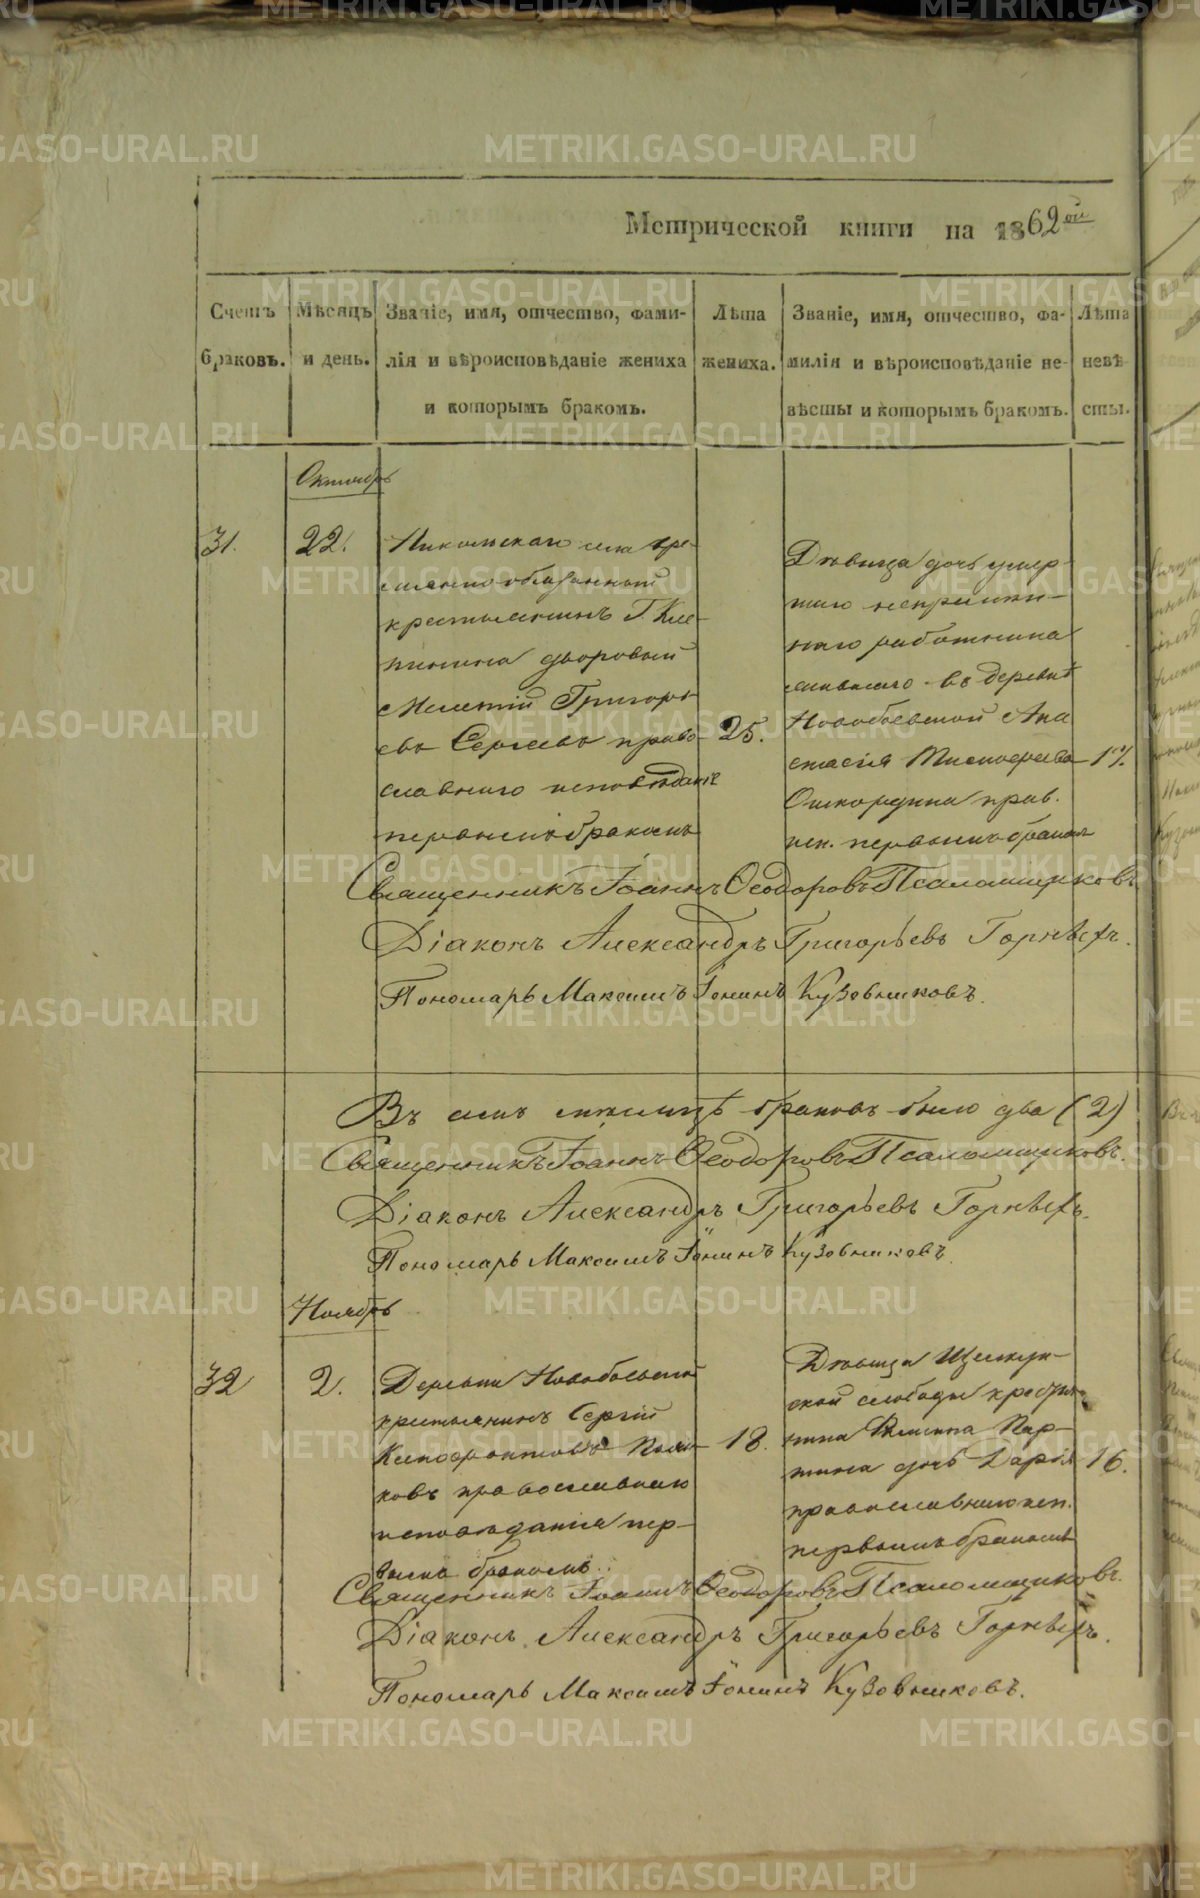 Метрической книги на 1862ой
Счетъ браковъ.
Мѣсяцъ и день.
Званіе, имя, отчество, фами-
лія и вѣроисповѣданіе жениха
и которымъ бракомъ.
Лѣта
жениха.
Званіе, имя, отчество, фа-
милія и вѣроисповѣданіе не-
вѣсты и которымъ бракомъ.
Лѣта
невѣ-
сты.
Октябрь
31.
22.
Никольскаго села вре-
менно-обязанный
крестьянинъ Г. Кле-
пинина дворовый
Мелетій Григорь-
евъ Сергѣевъ право-
славнаго исповѣданія
первымъ бракомъ
25.
Дѣвица дочь умер-
шаго непремѣн-
наго работника
въ деревнѣ
Новобаевской Ана
стасія Тимофеева
прав.
исп. первымъ бракомъ
17.
Священникъ Іоаннъ Ѳеодоровъ Псаломщиковъ
Діаконъ Александръ Григорьевъ Горныхъ.
Пономарь Максимъ Іонинъ Кузовниковъ.
Въ семъ мѣсяцѣ браковъ было два (2)
Священникъ Іоаннъ Ѳеодоровъ Псаломщиковъ.
Діаконъ Александръ Григорьевъ Горныхъ.
Пономарь Максимъ Іонинъ Кузовниковъ
Ноябрь
32
2.
Деревни Новобаевской
крестьянинъ Сергій
Ксенофонтовъ Поля-
ковъ православнаго
исповѣданія пер-
вымъ бракомъ.
18.
Дѣвица Щелкун-
ской слободы крестья-
нина Филиппа Пар-
шина дочь Дарія
православнаго исп.
первымъ бракомъ
16.
Священникъ Іоаннъ Ѳеодоровъ Псаломщиковъ.
Діаконъ Александръ Григорьевъ Горныхъ.
Пономарь Максимъ Іонинъ Кузовниковъ.
METRIKI.GASO-URAL.RU